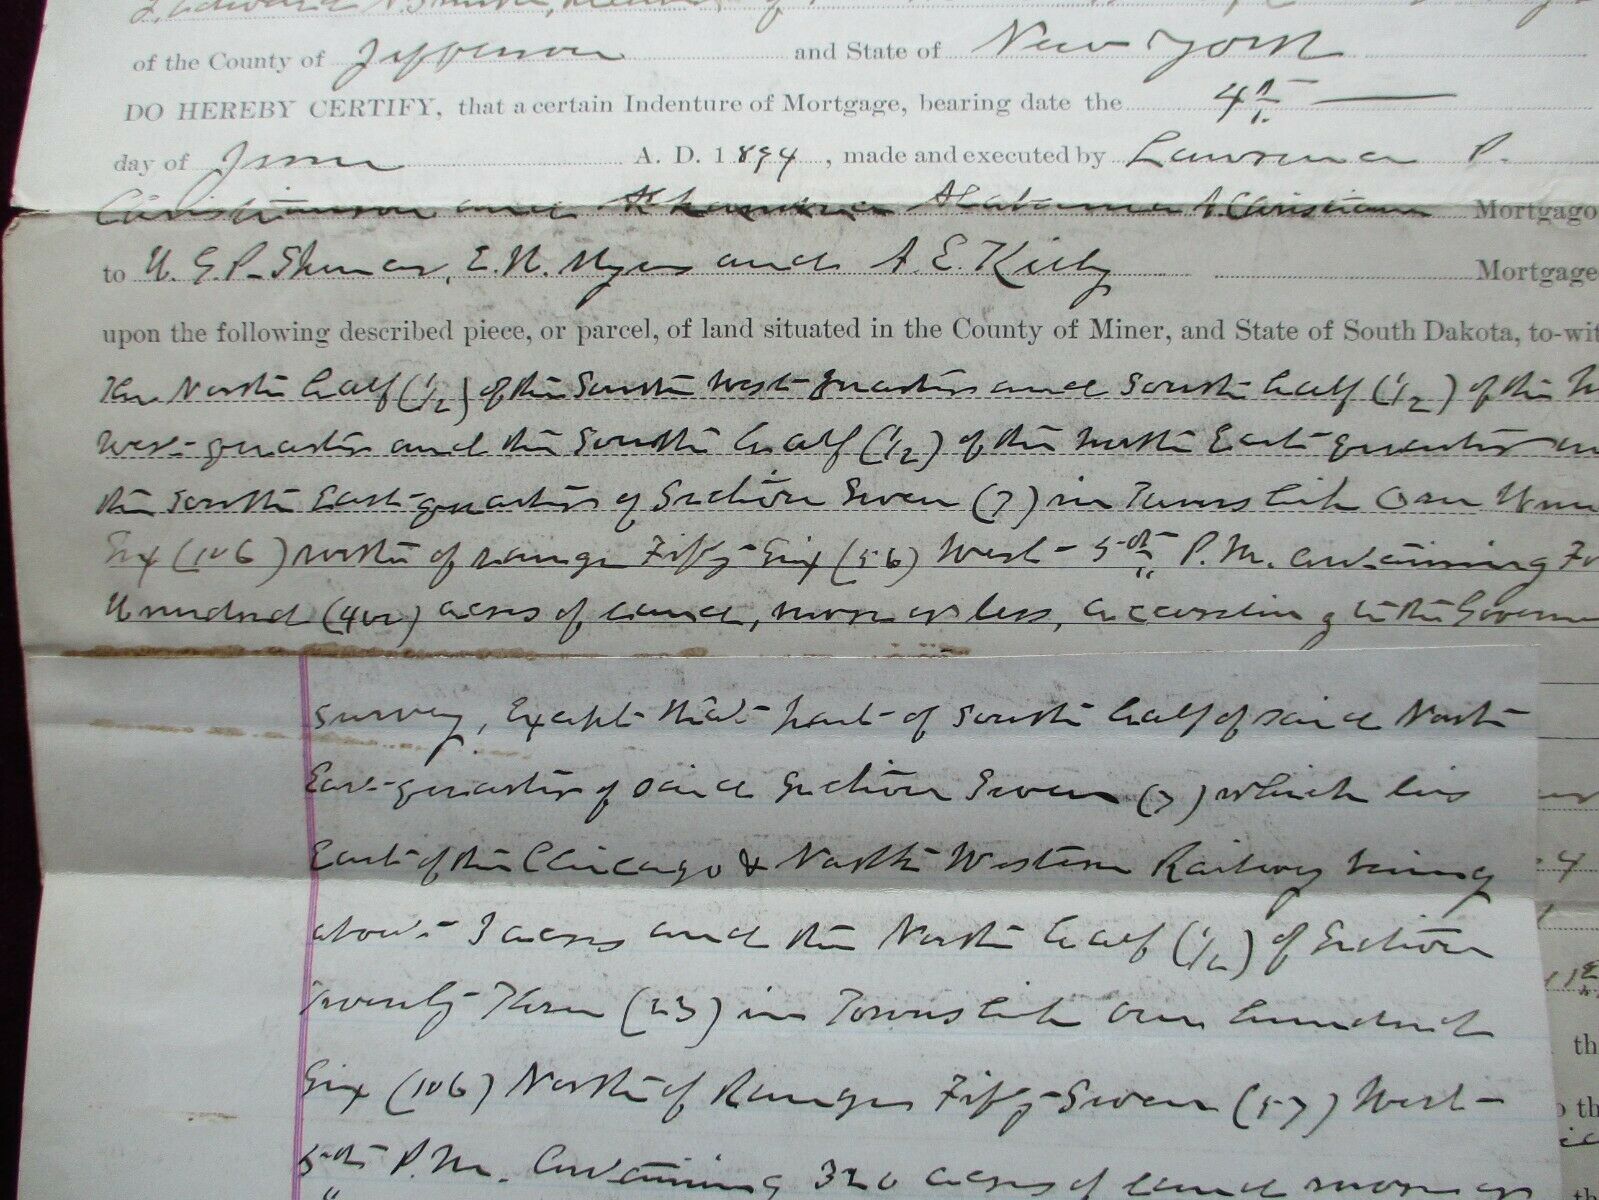 of the County of Jefferson and State of New York
DO HEREBY CERTIFY, that a certain Indenture of Mortgage, bearing date the 4th
day of June A. D. 1894, made and executed by Lawrence P.
Christianson and Alabama A Christians Mortgago
to U. G. P. E. N. Myers and A. E. Kirby Mortgage
upon the following described piece, or parcel, of land situated in the County of Miner, and State of South Dakota, to-wit
The North half (1/2) of the South West quarter and South half (1/2) of the N
West quarter and the South half (1/2) of the North East quarter an
the South East quarter of Section Seven (7) in Township One Hun
Six (106) north of range Fifty Six (56) West 5th P. M. containing Fo
Hundred (400) acres of land, more or less, according to the Governm
survey, Except that part of South half of said North
East quarter of said Section Seven (7) which lies
East of the Chicago & North Western Railway being
about 3 acres and the North half (1/2) of Section
Twenty Three (23) in Township One hundred
Six (106) North of Range Fifty Seven (57) West
5th P. M. Containing 320 acres of land more or
th
th